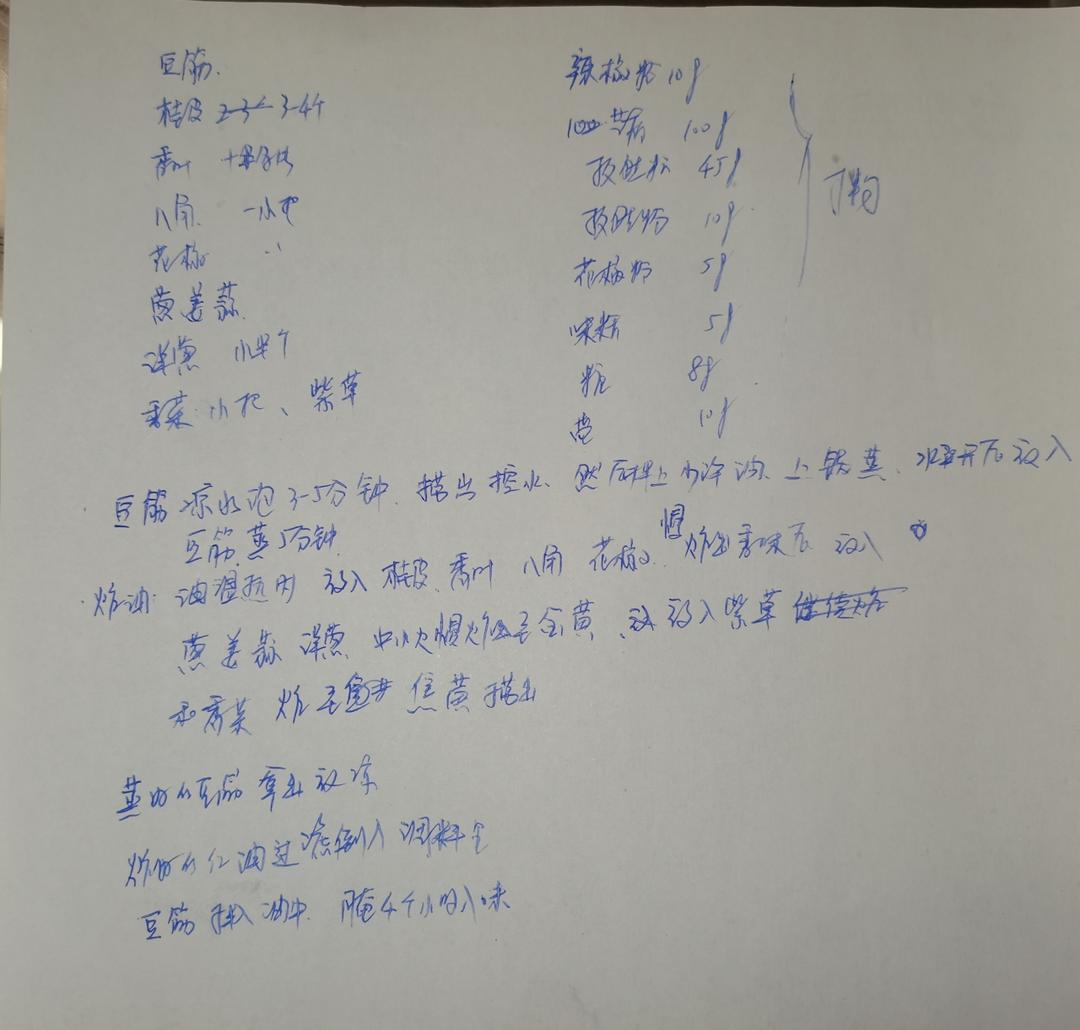 豆筋.
桂皮 3-4个
香叶
八角. 一小把
花椒 ､､
葱姜蒜.
洋葱 小半个
香菜 小把、紫草
辣椒粉 10g
芝麻 100g
45g
10g
花椒粉 5g
味精 5g
糖 8g
盐 10g
拌匀
豆筋 凉水泡3-5分钟. 捞出控水. 然后拌上少许油. 上锅蒸. 水开后放入
豆筋. 蒸5分钟.
炸油: 油温热时 放入 桂皮. 香叶 八角 花椒. 慢炸出香味后 放入
葱姜蒜 洋葱 中小火慢炸至金黄. 放入紫草
和香菜 炸至 焦黄捞出
蒸好的豆筋 拿出放凉
炸好的红油过滤倒入 调料里
豆筋 拌入油中. 腌4个小时入味